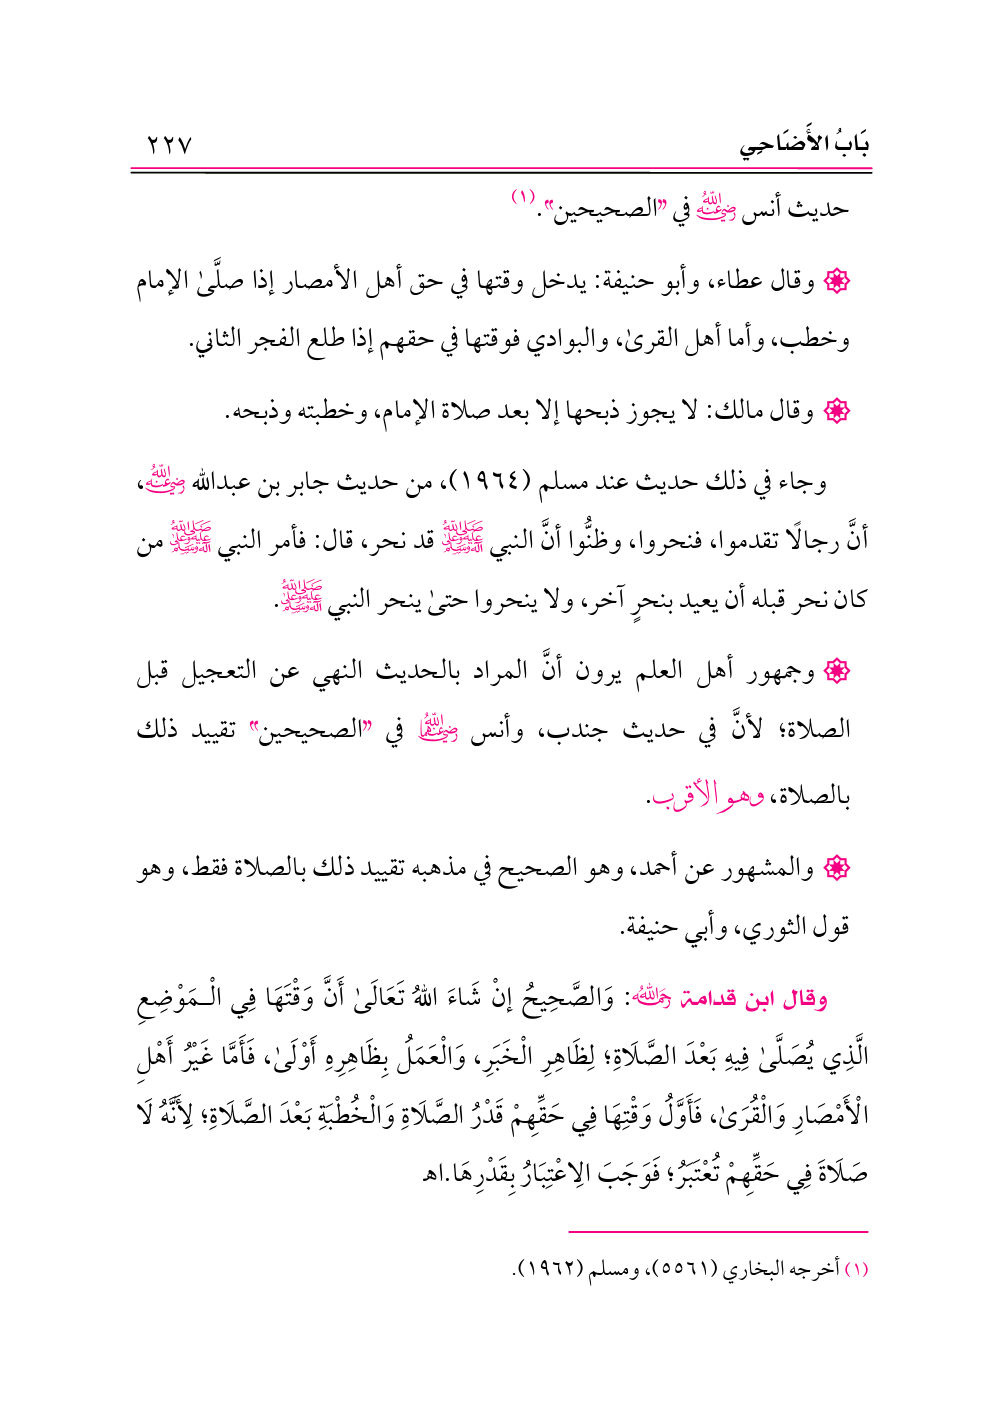 بَابُ الأَضَاحِي ٢٢٧
حديث أنس رضي الله عنه في "الصحيحين".(١)
وقال عطاء، وأبو حنيفة: يدخل وقتها في حق أهل الأمصار إذا صلَّىٰ الإمام
وخطب، وأما أهل القرىٰ، والبوادي فوقتها في حقهم إذا طلع الفجر الثاني.
وقال مالك: لا يجوز ذبحها إلا بعد صلاة الإمام، وخطبته وذبحه.
وجاء في ذلك حديث عند مسلم (١٩٦٤)، من حديث جابر بن عبدالله رضي الله عنه،
أنَّ رجالًا تقدموا، فنحروا، وظنُّوا أنَّ النبي ﷺ قد نحر، قال: فأمر النبي ﷺ من
كان نحر قبله أن يعيد بنحرٍ آخر، ولا ينحروا حتىٰ ينحر النبي ﷺ.
وجمهور أهل العلم يرون أنَّ المراد بالحديث النهي عن التعجيل قبل
الصلاة؛ لأنَّ في حديث جندب، وأنس رضي الله عنهما في "الصحيحين" تقييد ذلك
بالصلاة، وهو الأقرب.
والمشهور عن أحمد، وهو الصحيح في مذهبه تقييد ذلك بالصلاة فقط، وهو
قول الثوري، وأبي حنيفة.
وقال ابن قدامة رحمه الله: وَالصَّحِيحُ إنْ شَاءَ اللهُ تَعَالَىٰ أَنَّ وَقْتَهَا فِي الْـمَوْضِعِ
الَّذِي يُصَلَّىٰ فِيهِ بَعْدَ الصَّلَاةِ؛ لِظَاهِرِ الْخَبَرِ، وَالْعَمَلُ بِظَاهِرِهِ أَوْلَىٰ، فَأَمَّا غَيْرُ أَهْلِ
الْأَمْصَارِ وَالْقُرَىٰ، فَأَوَّلُ وَقْتِهَا فِي حَقِّهِمْ قَدْرُ الصَّلَاةِ وَالْخُطْبَةِ بَعْدَ الصَّلَاةِ؛ لِأَنَّهُ لَا
صَلَاةَ فِي حَقِّهِمْ تُعْتَبَرُ؛ فَوَجَبَ الِاعْتِبَارُ بِقَدْرِهَا.اهـ
(١) أخرجه البخاري (٥٥٦١)، ومسلم (١٩٦٢).